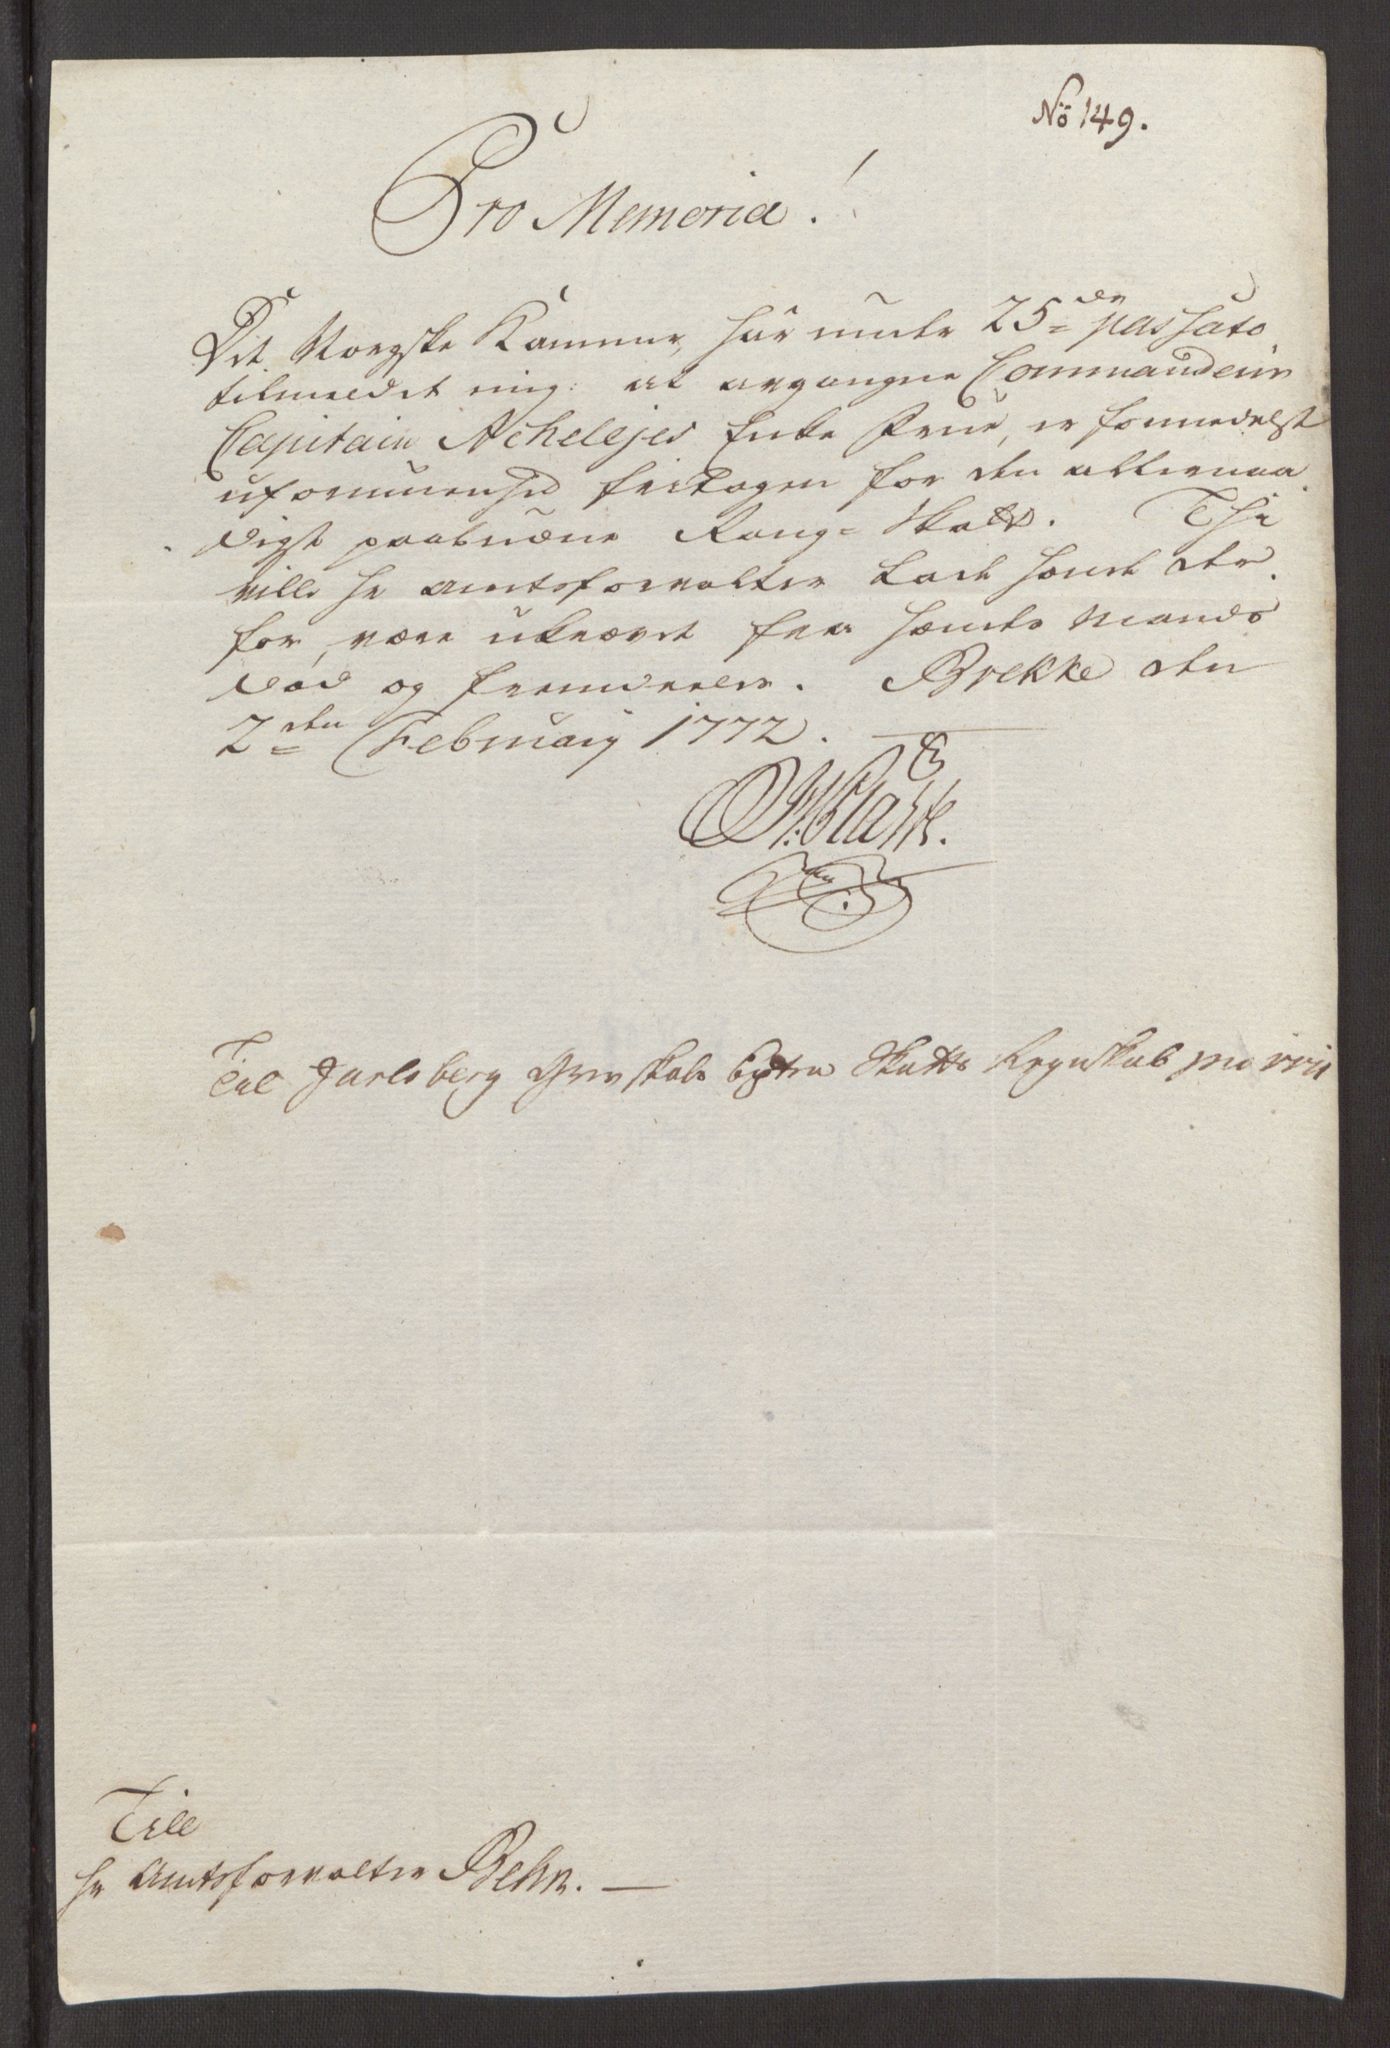 No 149.
Pro Memoria!
Det Norske Kammer, har under 25de passato
tilmeldet mig: at afgangne Commandeur
Capitain Achelejes Enke Frue, er formedelst
uformuenhed fritagen for den allernaa
digst paabudne Rang-Skatt. Thi
ville Hr Amtsforvalter lade hende der
for, være ukrævet fra hendes Mands
død og fremdeeles. Brekke den
2den Februarij 1772.
Till Jarlsberg Grevskabs Extra Skatts Regnskab pro
Till
Hr Amtsforvalter Behn.